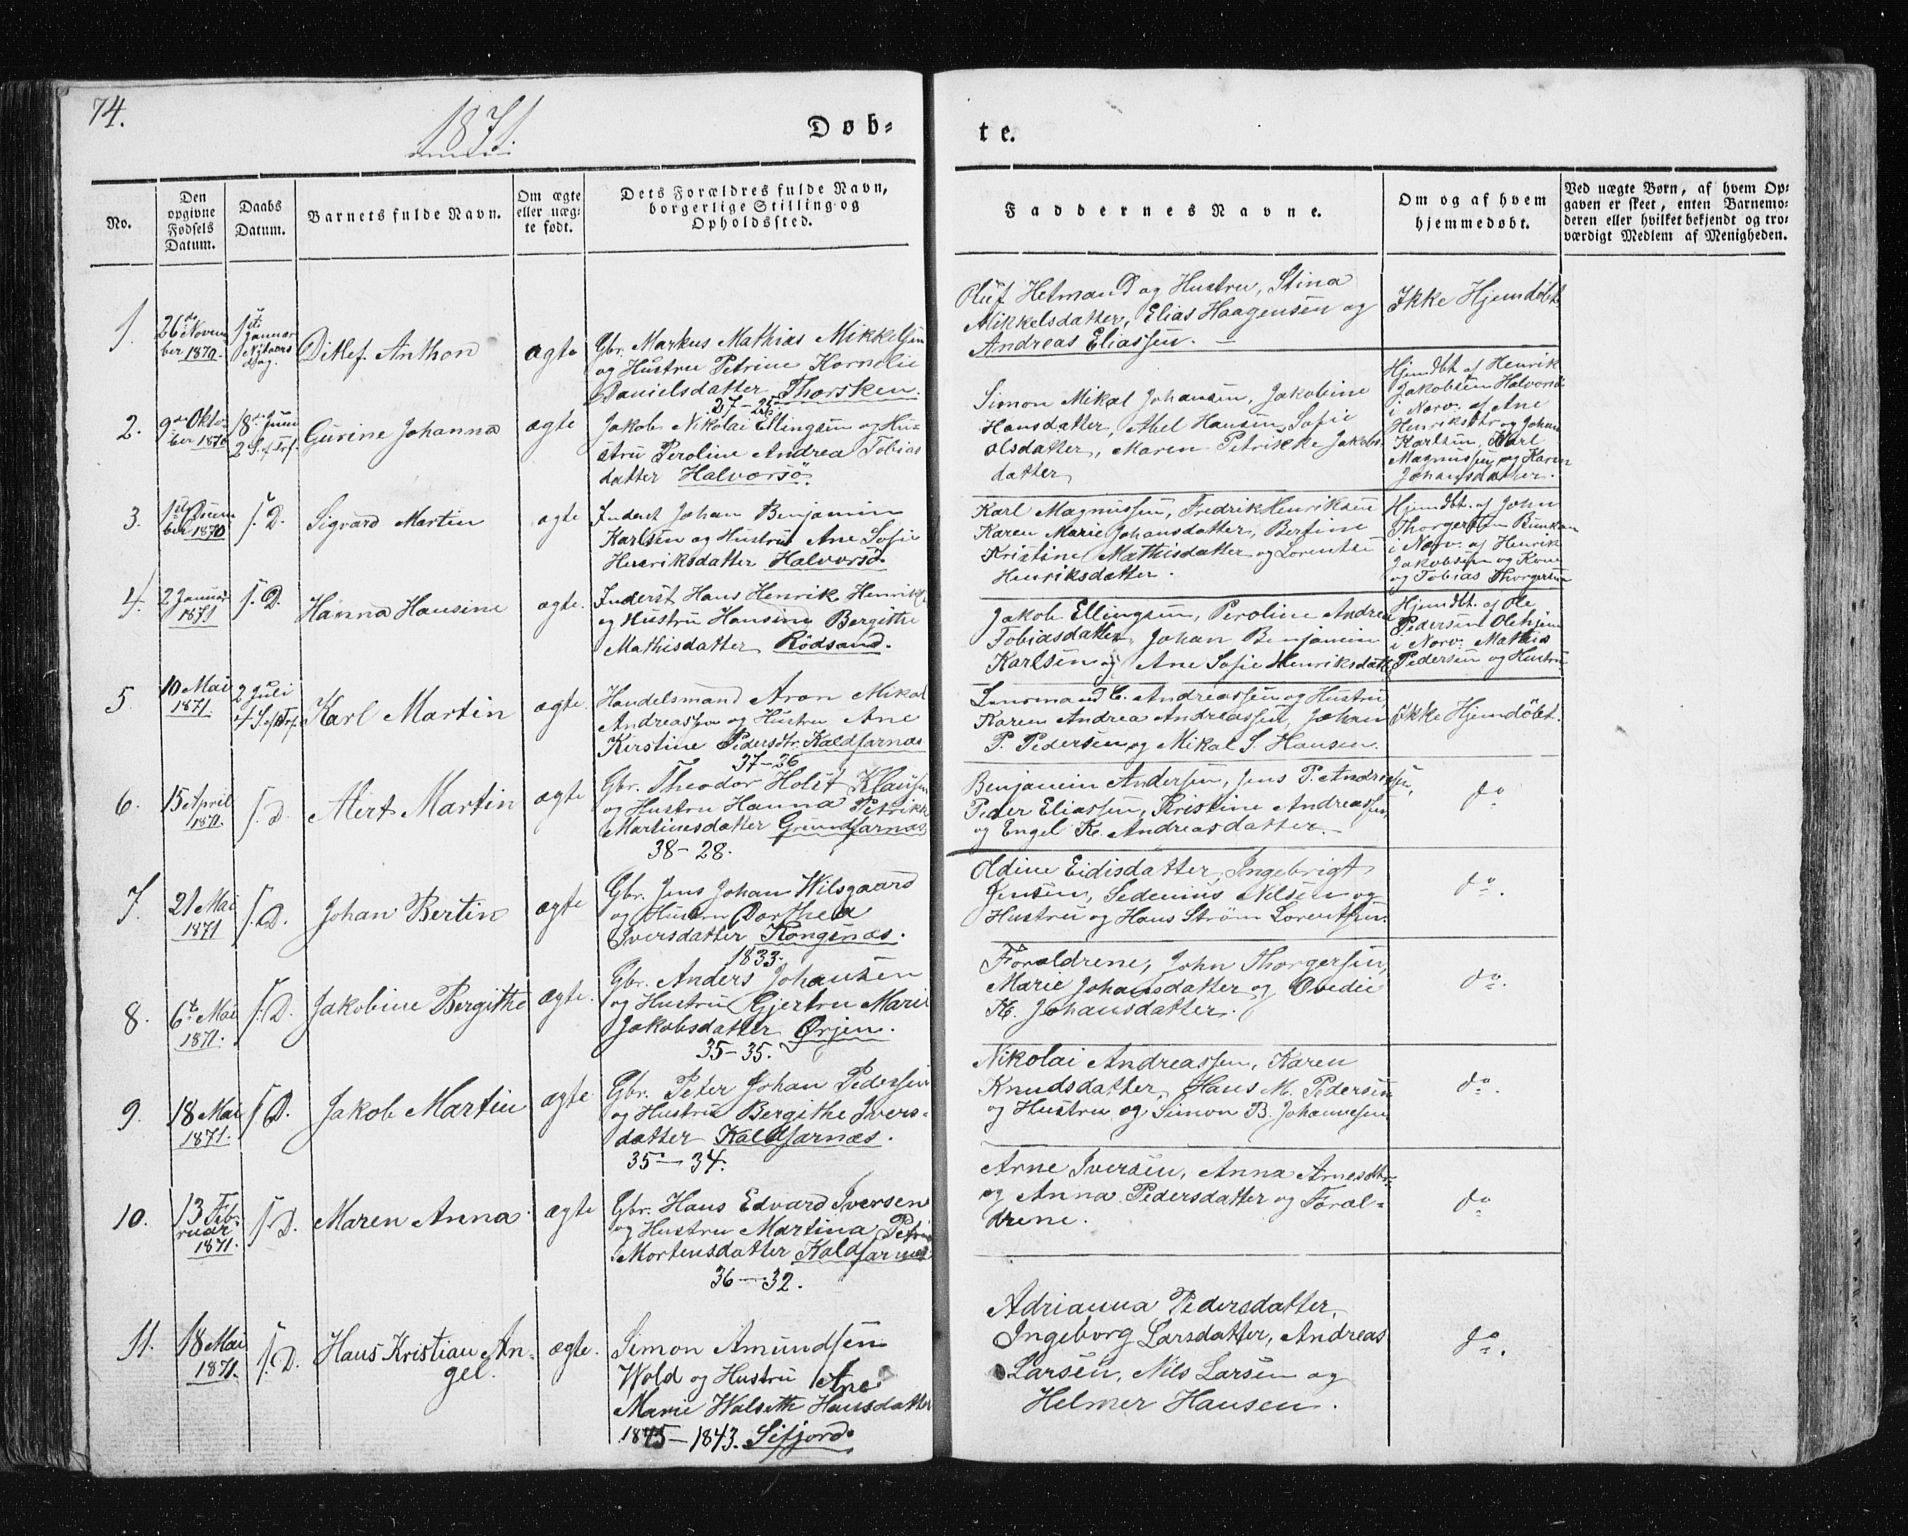 74.
1871.
Døb-
te.
No.
Den opgivne Fødsels Datum.
Daabs Datum.
Barnets fulde Navn.
Om ægte eller uægte født.
Dets Forældres fulde Navn, borgerlige Stilling og Opholdssted.
Faddernes Navne.
Om og af hvem hjemmedøbt.
Ved uægte Børn, af hvem Opgaven er skeet, enten Barnemoderen eller hvilket bekjendt og troværdigt Medlem af Menigheden.
1.
26de Novem
ber 1870
1ste
Januar
Nytaars
dag.
Ditlef Anthon
ægte
Gbr. Markus Mathias Mikkelsen
og Hustru Petrine Kornelie
Danielsdatter Thorsken.
27-25
Oluf Hetmand og Hustru, Stina
Mikkelsdatter, Elias Haagensen og
Andreas Eliassen.
Ikke Hjemdøbt
2.
9de Okto-
ber 1870
18de Juni
2 S. e. Tref.
Gurine Johanna
ægte
Jakob Nikolai Ellingsen og Hu-
stru Peroline Andrea Tobias
datter Halvorsø.
Simon Mikal Johansen, Jakobine
Hansdatter, Abel Hansen, Sofie
Olsdatter, Maren Petrikke Jakobs
datter
Hjemdbt. af Henrik
Jakobsen Halvorsø
i Nærv. af Ane
Henriksdtr og Johan
Karlsen, Karl
Magnussen og Karen
Johansdatter.
3.
1ste Decem
ber 1870
s. D.
Sigvard Martin
ægte
Inderst Johan Benjamin
Karlsen og Hustru Ane Sofie
Henriksdatter Halvorsø
Karl Magnussen, Fredrik Henriksen
Karen Marie Johansdatter, Bertine
Kristine Mathisdatter og Lorentse
Henriksdatter.
Hjemdbt. af John
Thorgersen Bunkan
i Nærv. af Henrik
Jakobsen og Kone
og Tobias Thorgersen
4.
2 Januar
1871
s. D.
Hanna Hansine
ægte.
Inderst Hans Henrik Henriks
og Hustru Hansine Bergithe
Mathisdatter Rödsand.
Jakob Ellingsen, Peroline Andrea
Tobiasdatter, Johan Benjamin
Karlsen og Ane Sofie Henriksdatt
Hjemdbt. af Ole
Pedersen
i Nærv: Mathis
Pedersen og Hustru
5
10 Mai
1871.
2 Juli
4 S. e. Tref.
Karl Martin
ægte.
Handelsmand Aron Mikal
Andreassen og Hustru Ane
Kirstine Pedersdtr. Kaldfarnæs
37-26
Lensmand C. Andreassen og Hustru
Karen Andrea Andreassen, Johan
P. Pedersen og Mikal S. Hansen.
Ikke Hjemdöbt.
6.
15 April
1871.
s. D.
Alert Martin
ægte
Gbr. Theodor Holst Klausen
og Hustru Hanna Petrikk
Martinesdatter Grundfarnæs
38-28.
Benjamin Andersen, Jens P. Andreassen,
Peder Eliassen, Kristine Andreassen
og Engel K. Andreasdatter.
do
7.
21 Mai
1871
s. D.
Johan Bertin
ægte
Gbr. Jens Johan Wilsgaard
og Hustru Dorthea
Iversdatter Kongsnæs.
1833.
Oldine Eidisdatter, Ingebrigt
Jensen, Sedenius Nilsen og
Hustru og Hans Strøm Lorentsen.
do.
8.
6te Mai
1871.
s. D.
Jakobine Bergithe
ægte.
Gbr. Anders Johansen
og Hustru Gjertru Marie
Jakobsdatter Ørjen.
35-35.
Forældrene, John Thorgersen,
Marie Johansdatter og Ovedie
K. Johansdatter.
do.
9.
18 Mai
1871.
s. D.
Jakob Martin
ægte
Gbr. Peter Johan Pedersen
og Hustru Bergithe Ivers-
datter Kaldfarnæs.
35-34.
Nikolai Andreassen, Karen
Knudsdatter, Hans M. Pedersen
og Hustru og Simon B. Johannesen
do.
10.
13 Feb-
ruar
1871.
s. D.
Maren Anna
ægte
Gbr. Hans Edvard Iversen
og Hustru Martina Petrin
Mortensdatter Kaldfarnæs
36-32.
Arne Iversen, Anna Arnesdtr.
og Anna Pedersdatter og Foræl-
drene.
do
11.
18 Mai
1871.
s. D.
Hans Kristian An-
gel.
ægte.
Simon Amundsen
Wold og Hustru Ane
Marie Walseth Hansdatter
1845-1843. Sifjord.
Adrianna Pedersdatter,
Ingeborg Larsdatter, Andreas
Larsen, Nils Larsen og
Helmer Hansen.
do.